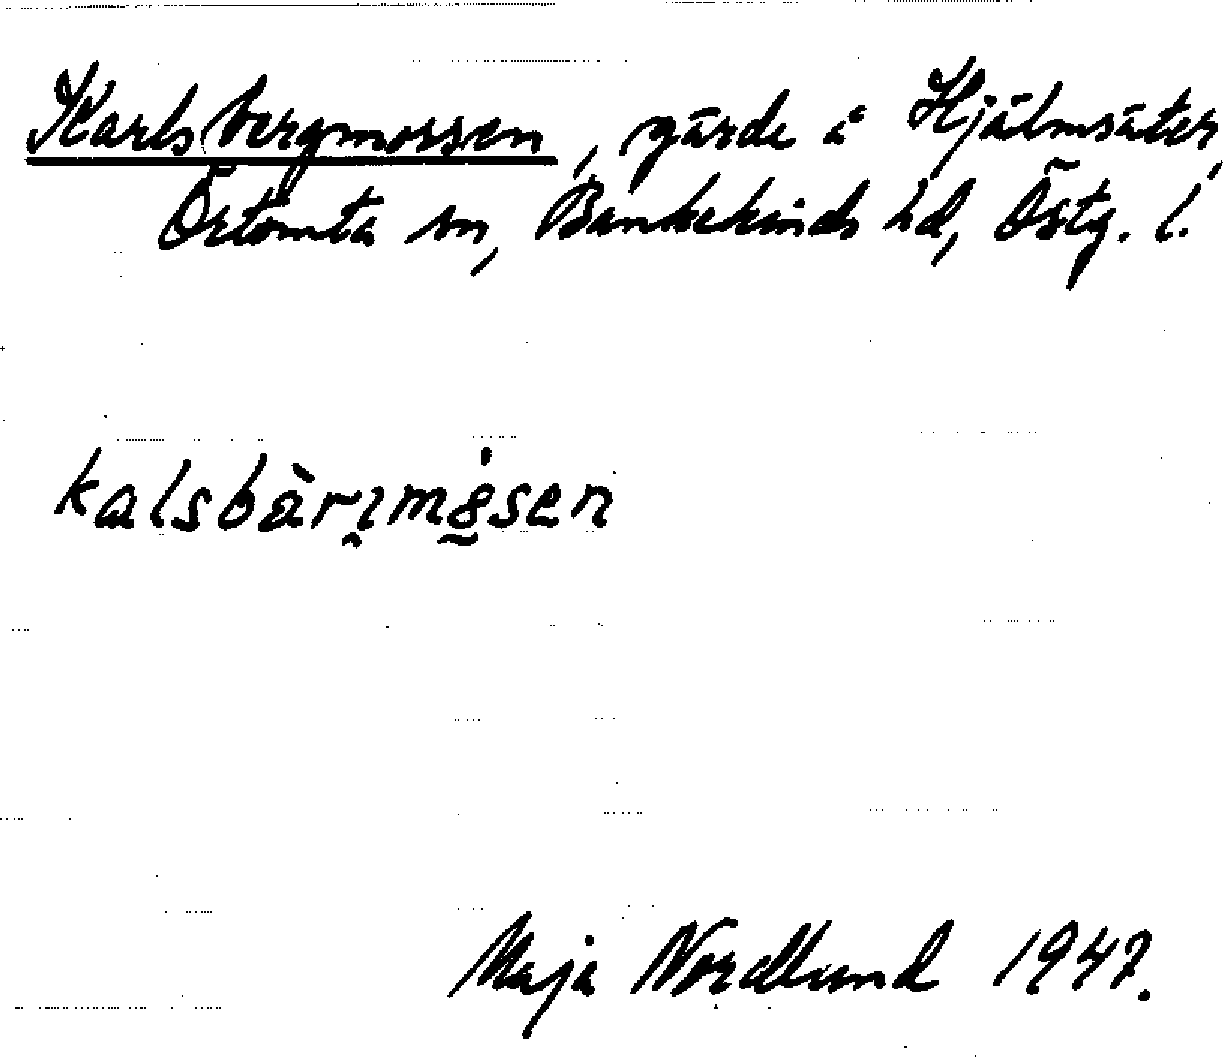 Karlsbergmossen, gärde å Hjälmsäter,
Örtomta sn, Bankekinds hd, Östg. l.
kalsbàrı̭mo̰̊sen
Maja Nordlund 1947.